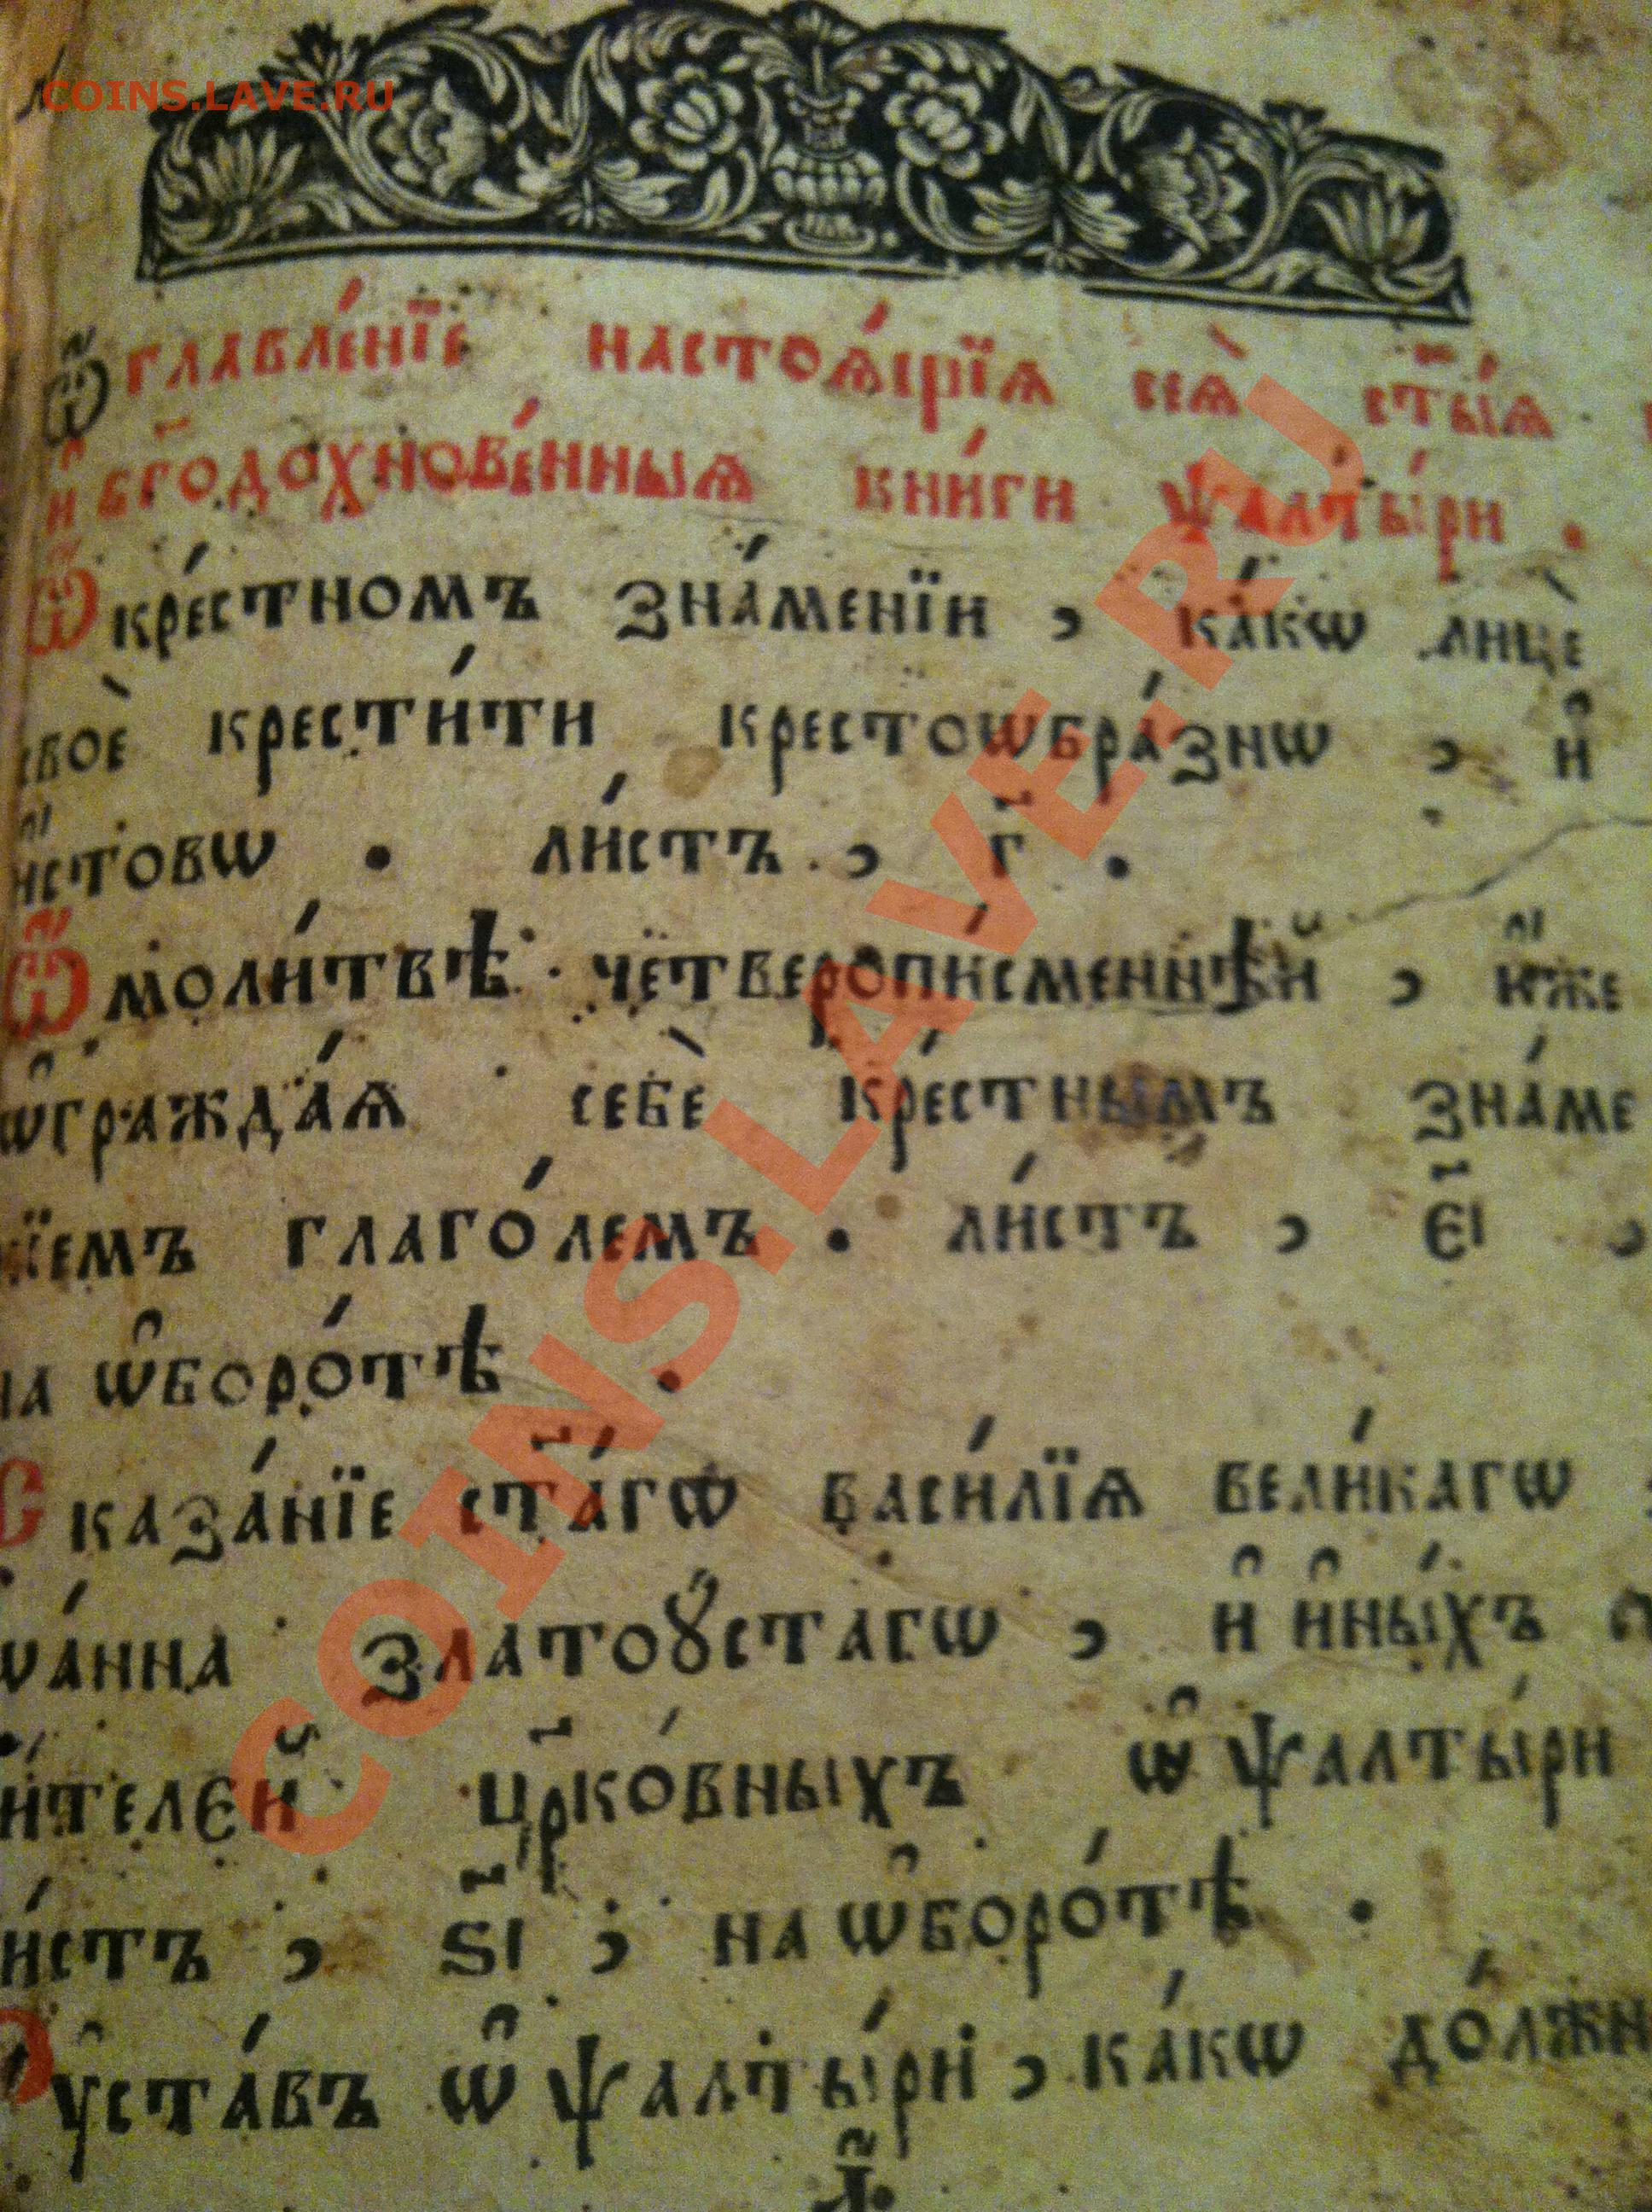 COINS.LAVE.RU
Ѽглавле́нїе настоѧ́щїѧ сеѧ̀ ст҃ы́ѧ
и҆ бг҃одохнове́нныѧ кни́ги ѱалты́ри .
Ѽ кре́стномъ зна́менїи , ка́кѡ лицѐ
своѐ крести́ти крестоѡбра́знѡ , и҆
и҆́стовѡ . ли́стъ , г҃ .
Ѽ моли́твѣ четверопи́сменнѣй , и҆́же
ѡ҆гражда́ѧ себѐ кре́стнымъ зна́ме
нїемъ глаго́лемъ . ли́стъ , є҃і ,
на ѡ҆боро́тѣ .
Сказа́нїе ст҃а́гѡ васи́лїѧ вели́кагѡ
ѡа́нна златоꙋ́стагѡ , и҆ и҆ны́хъ
и́телєй цр҃ко́вныхъ ѡ҆ ѱалты́ри
ли́стъ , ѕ҃і , на ѡ҆боро́тѣ .
Оу҆ста́въ ѡ҆ ѱалты́ри , ка́кѡ до́лжн
COINS.LAVE.RU